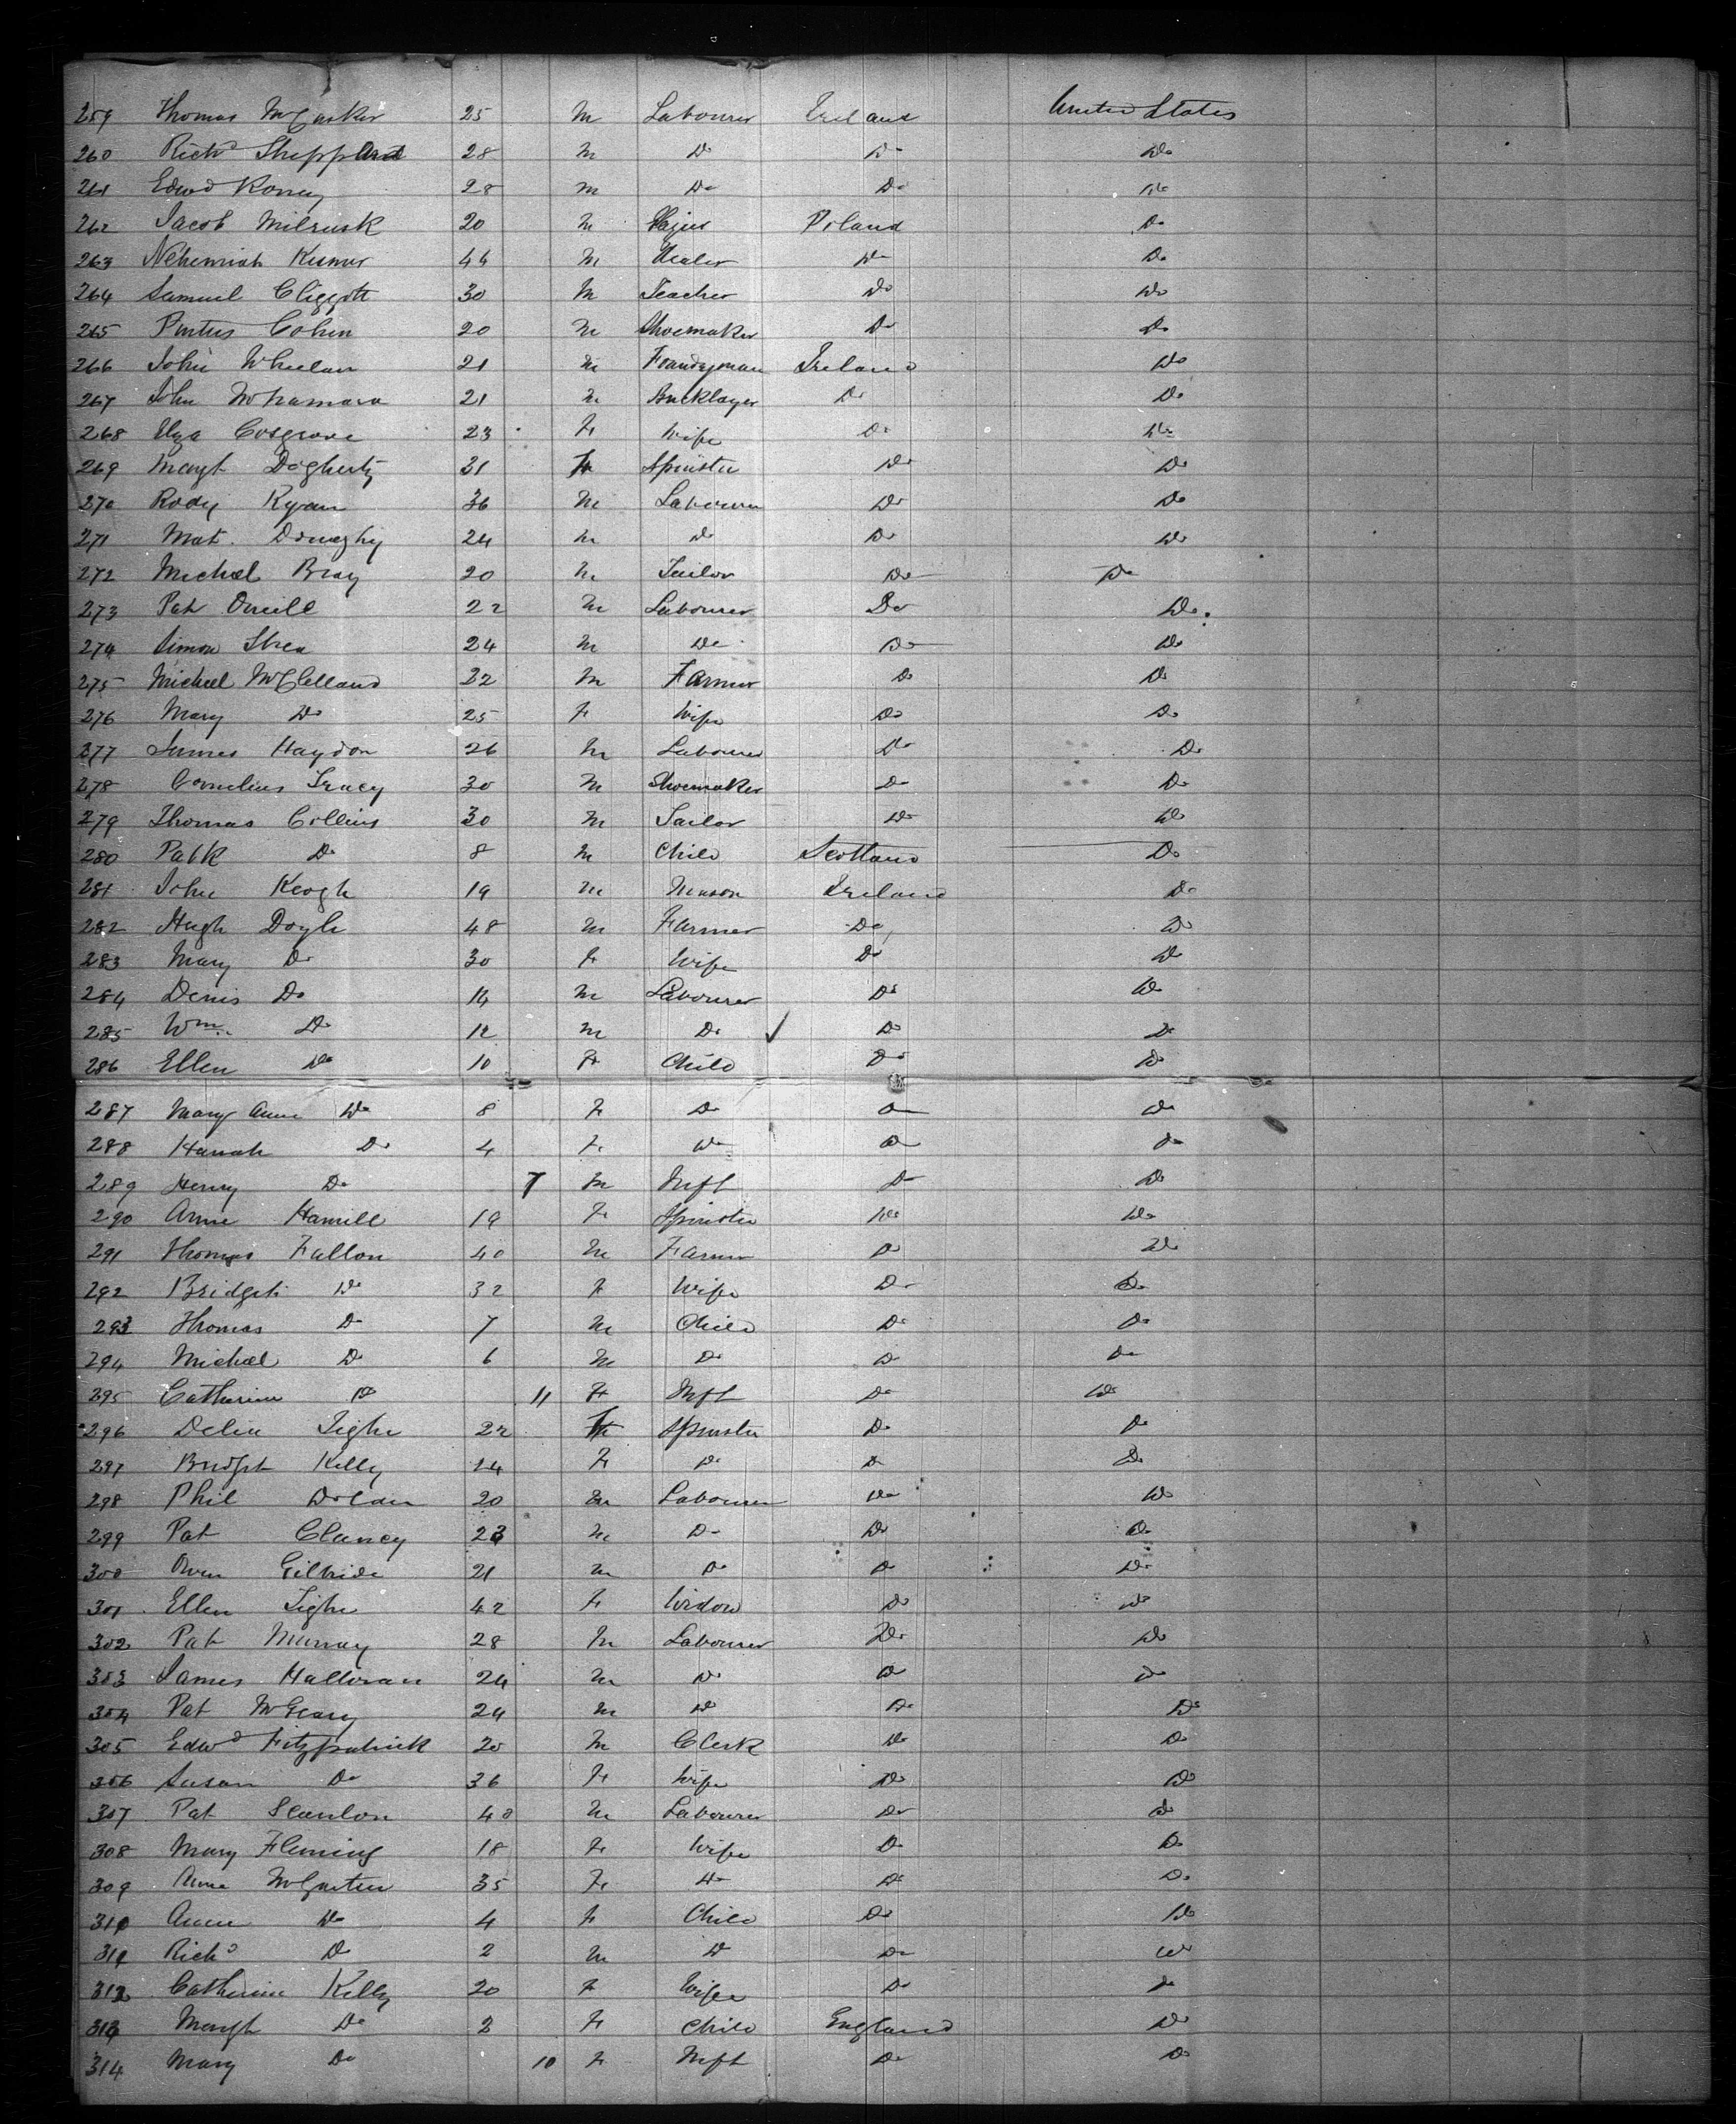 259 Thomas McCusker 25 M Labourer Ireland United States
260 Richd Sheppard 28 M Do Do Do
261 Edwd Roney 28 M Do Do Do
262 Jacob Milrusk 20 M Poland Do
263 Nehemiah 44 M Dealer Do Do
264 Samuel Cliggott 30 M Teacher Do Do
265 Pintus Cohen 20 M Shoemaker Do Do
266 John Wheelan 21 M Foundryman Ireland Do
267 John McNamara 21 M Bricklayer Do Do
268 Elza Cosgrove 23 F Wife Do Do
269 Margt Dogherty 31 F Spinster Do Do
270 Rody Ryan 36 M Labourer Do Do
271 Mat. Donaghy 24 M Do Do Do
272 Michael Bray 20 M Tailor Do Do
273 Pat Oneill 22 M Labourer Do Do
274 Simon Shea 24 M Do Do Do
275 Michael McClelland 22 M Farmer Do Do
276 Mary Do 25 F Wife Do Do
277 James Haydon 26 M Labourer Do Do
278 Cornelius Tracy 30 M Shoemaker Do Do
279 Thomas Collins 30 M Tailor Do Do
280 Patk Do 8 M Child Scotland Do
281 John Keogh 19 M Mason Ireland Do
282 Hugh Doyle 48 M Farmer Do Do
283 Mary Do 30 F Wife Do Do
284 Denis Do 14 M Labourer Do Do
285 Wm. Do 12 M Do Do Do
286 Ellen Do 10 F Child Do Do
287 Mary Anne Do 8 F Do Do Do
288 Hanah Do 4 F Do Do Do
289 Henry Do 7 M Inft Do Do
290 Anne Hamill 19 F Spinster Do Do
291 Thomas Fallon 40 M Farmer Do Do
292 Bridget Do 32 F Wife Do Do
293 Thomas Do 7 M Child Do Do
294 Michael Do 6 M Do Do Do
295 Catherine Do 11 F Inft Do Do
296 Delia Tighe 22 F Spinster Do Do
297 Bridget Kelly 14 F Do Do Do
298 Phil Dolan 20 M Labourer Do Do
299 Pat Clancy 23 M Do Do Do
300 Owen Gilbride 21 M Do Do Do
301 Ellen Tighe 42 F Widow Do Do
302 Pat Murray 28 M Labourer Do Do
303 James Halloran 24 M Do Do Do
304 Pat McGeary 24 M Do Do Do
305 Edwd Fitzpatrick 20 M Clerk Do Do
306 Susan Do 36 F Wife Do Do
307 Pat Scanlon 40 M Labourer Do Do
308 Mary Fleming 18 F Wife Do Do
309 Anne 35 F Do Do Do
310 Anne Do 4 F Child Do Do
311 Richd Do 2 M Do Do Do
312 Catherine Kelly 20 F Wife Do Do
313 Margt Do 2 F Child England Do
314 Mary Do 10 F Inft Do Do